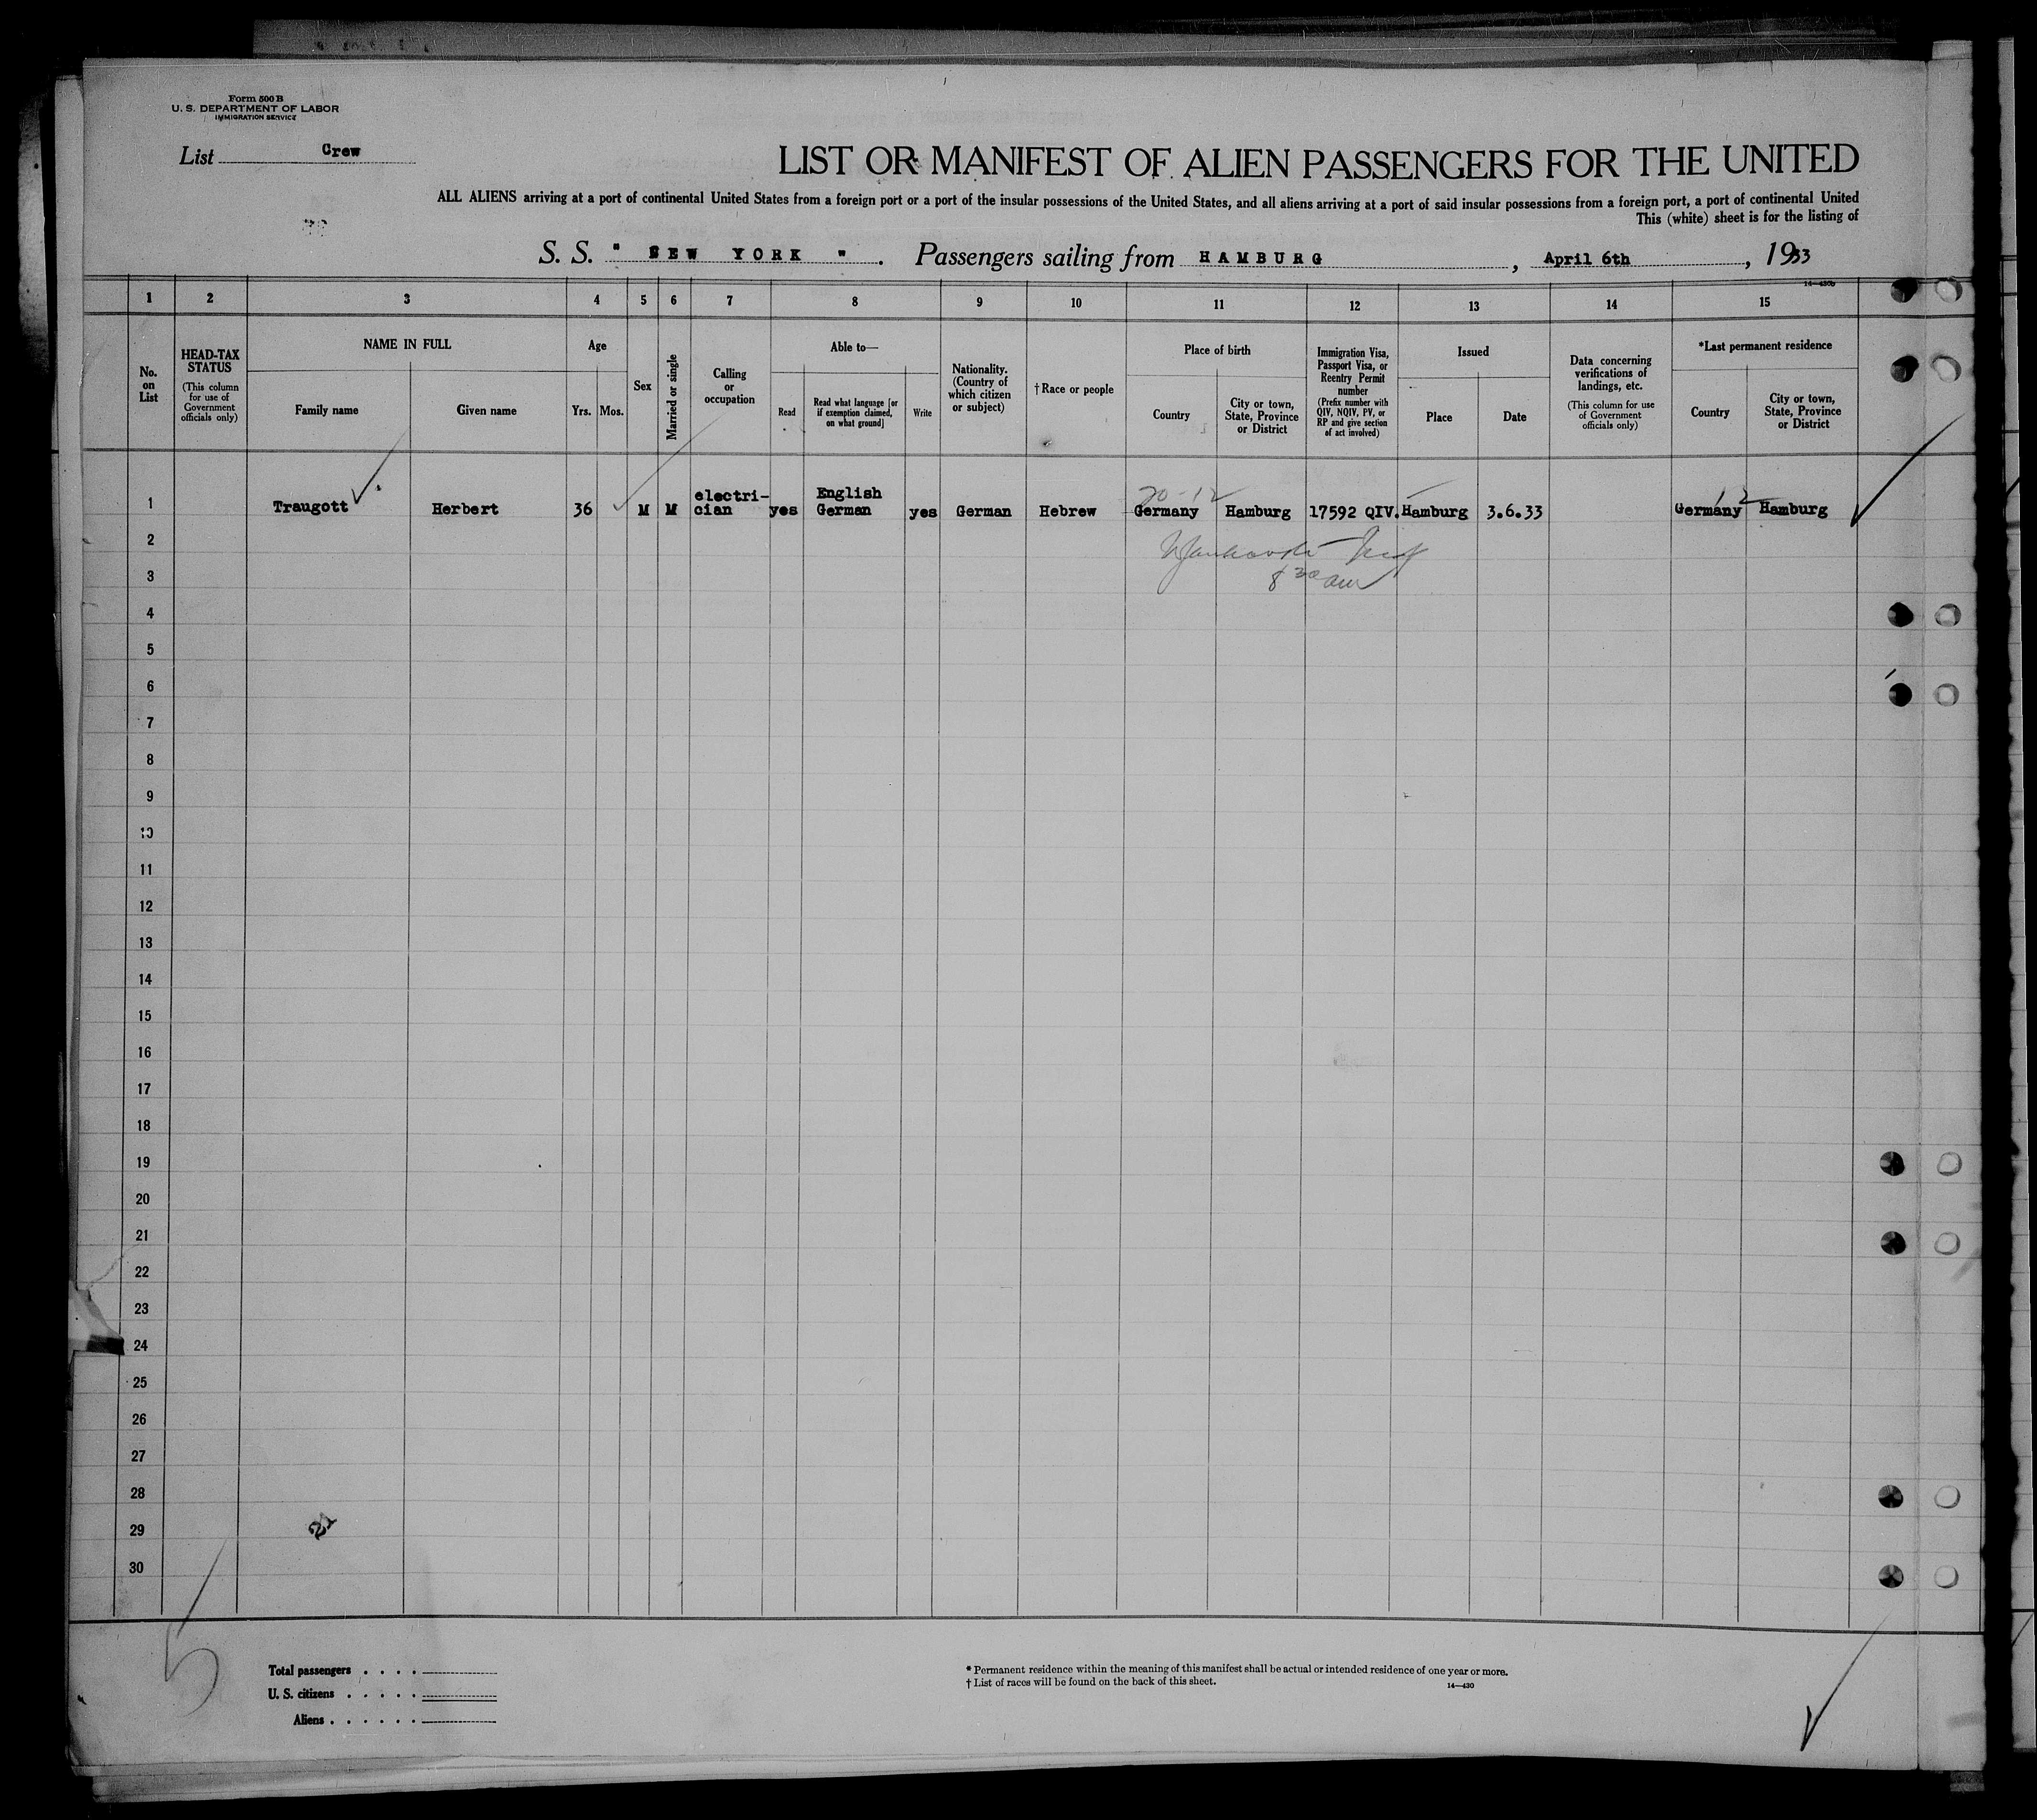 Form 500 B
U. S. DEPARTMENT OF LABOR
IMMIGRATION SERVICE
List Crew
LIST OR MANIFEST OF ALIEN PASSENGERS FOR THE UNITED
ALL ALIENS arriving at a port of continental United States from a foreign port or a port of the insular possessions of the United States, and all aliens arriving at a port of said insular possessions from a foreign port, a port of continental United
This (white) sheet is for the listing of
S. S. " NEW YORK ". Passengers sailing from HAMBURG, April 6th, 1933
14-430b
1 2 3 4 5 6 7 8 9 10 11 12 13 14 15
No. on List
HEAD-TAX STATUS (This column for use of Government officials only)
NAME IN FULL
Family name Given name
Age
Yrs. Mos.
Sex
Married or single
Calling or occupation
Able to—
Read
Read what language [or if exemption claimed, on what ground]
Write
Nationality. (Country of which citizen or subject)
† Race or people
Place of birth
Country
City or town, State, Province or District
Immigration Visa, Passport Visa, or Reentry Permit number (Prefix number with QIV, NQIV, PV, or RP and give section of act involved)
Issued
Place Date
Data concerning verifications of landings, etc. (This column for use of Government officials only)
*Last permanent residence
Country
City or town, State, Province or District
1 Traugott Herbert 36 M M electri-cian yes English German yes German Hebrew Germany Hamburg 17592 QIV. Hamburg 3.6.33 Germany Hamburg
20-12
12
2
8 30 am
3
4
5
6
7
8
9
10
11
12
13
14
15
16
17
18
19
20
21
22
23
24
25
26
27
28
29
21
30
5
Total passengers . . . .
U. S. citizens . . . . .
Aliens . . . . . .
* Permanent residence within the meaning of this manifest shall be actual or intended residence of one year or more.
† List of races will be found on the back of this sheet.
14-430